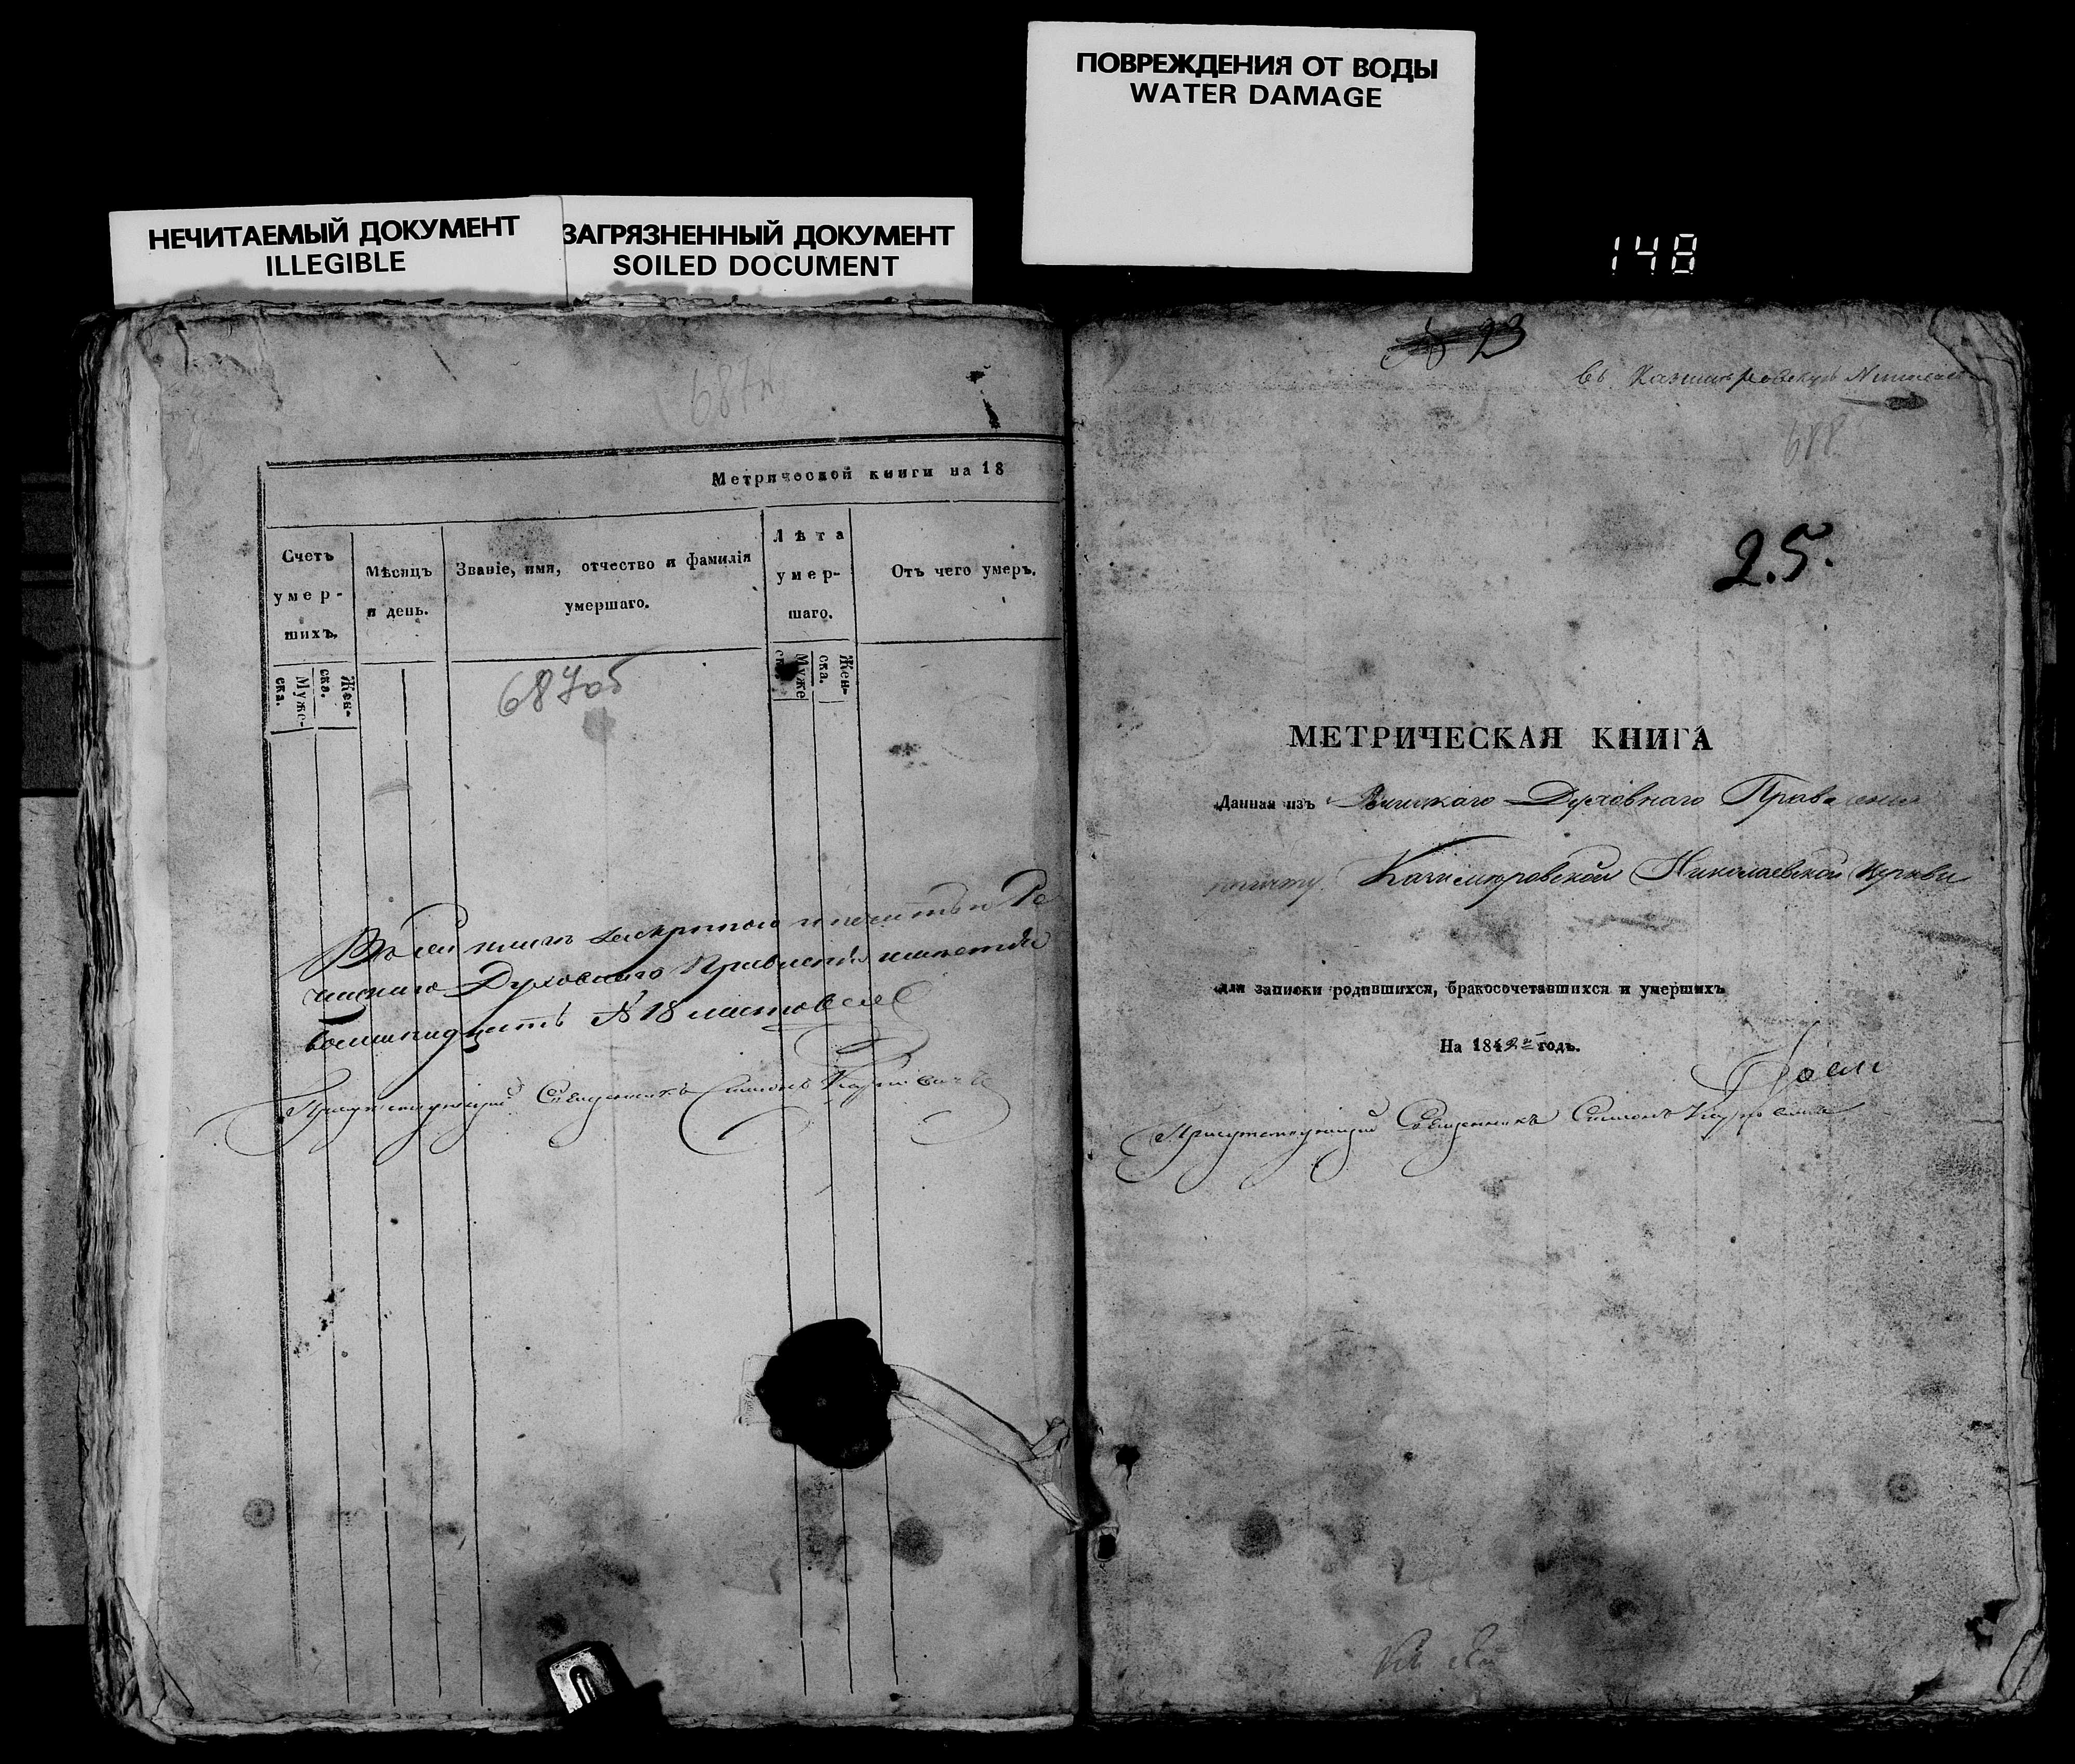 ПОВРЕЖДЕНИЯ ОТ ВОДЫ
WATER DAMAGE
НЕЧИТАЕМЫЙ ДОКУМЕНТ
ILLEGIBLE
ЗАГРЯЗНЕННЫЙ ДОКУМЕНТ
SOILED DOCUMENT
148
Метрической книги на 18
Счетъ умер-шихъ.
Мѣсяцъ и день.
Званіе, имя, отчество и фамилія умершаго.
Лѣта умер-шаго.
Отъ чего умеръ.
Муже-ска.
Жен-ска.
Муже
Жен-ска.
687об
Въ сей книгѣ за скрѣпою и печатью Рѣ
чицкаго Духовнаго Правленія шнетъ
восемнадцать № 18 листовъ
Присутствующій Священникъ Симонъ
23
въ Казимѣровскую
688
25.
МЕТРИЧЕСКАЯ КНИГА
Данная изъ Духовнаго Правленія
Казимѣровской Николаевской Церкви
для записки родившихся, бракосочетавшихся и умершихъ
На 1842й годъ.
Присутствующій Священникъ Симонъ